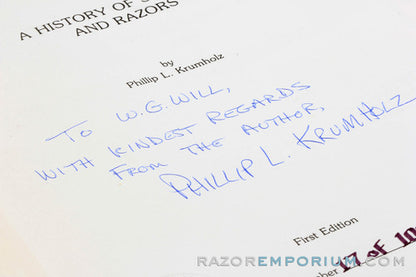 A HISTORY OF
AND RAZORS
by
Phillip L. Krumholz
TO W.G. WILL,
WITH KINDEST REGARDS
FROM THE AUTHOR,
PHILLIP L. KRUMHOLZ
First Edition
17 of 10
RAZOREMPORIUM.COM